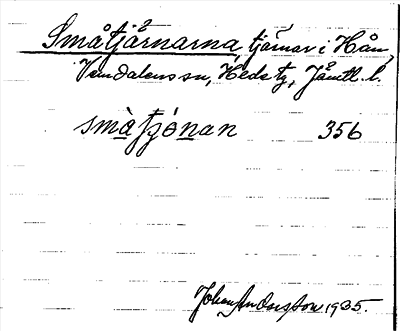 Småtjärnarna, tjärnar i Hån,
Vemdalens sn, Hede tg, Jämtl. l.
småtjɔ́nan 356
Johan Andersson 1935.